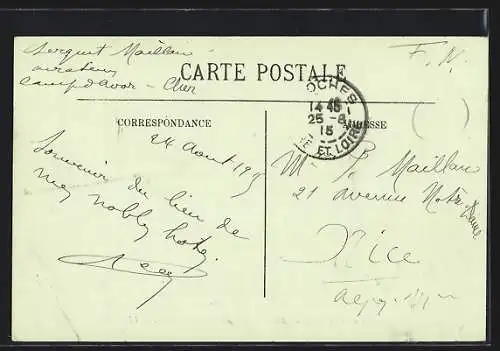 Sergent Maillan
aviateur
Camp d'Avor - Cher
F. M.
CARTE POSTALE
LOCHES
14 45
25 - 8
15
ET LOIRE
CORRESPONDANCE
ADRESSE
24 Aout 1915
Souvenir du lieu de
mes nobles
M P. Maillan
21 avenue Notre Dame
Nice